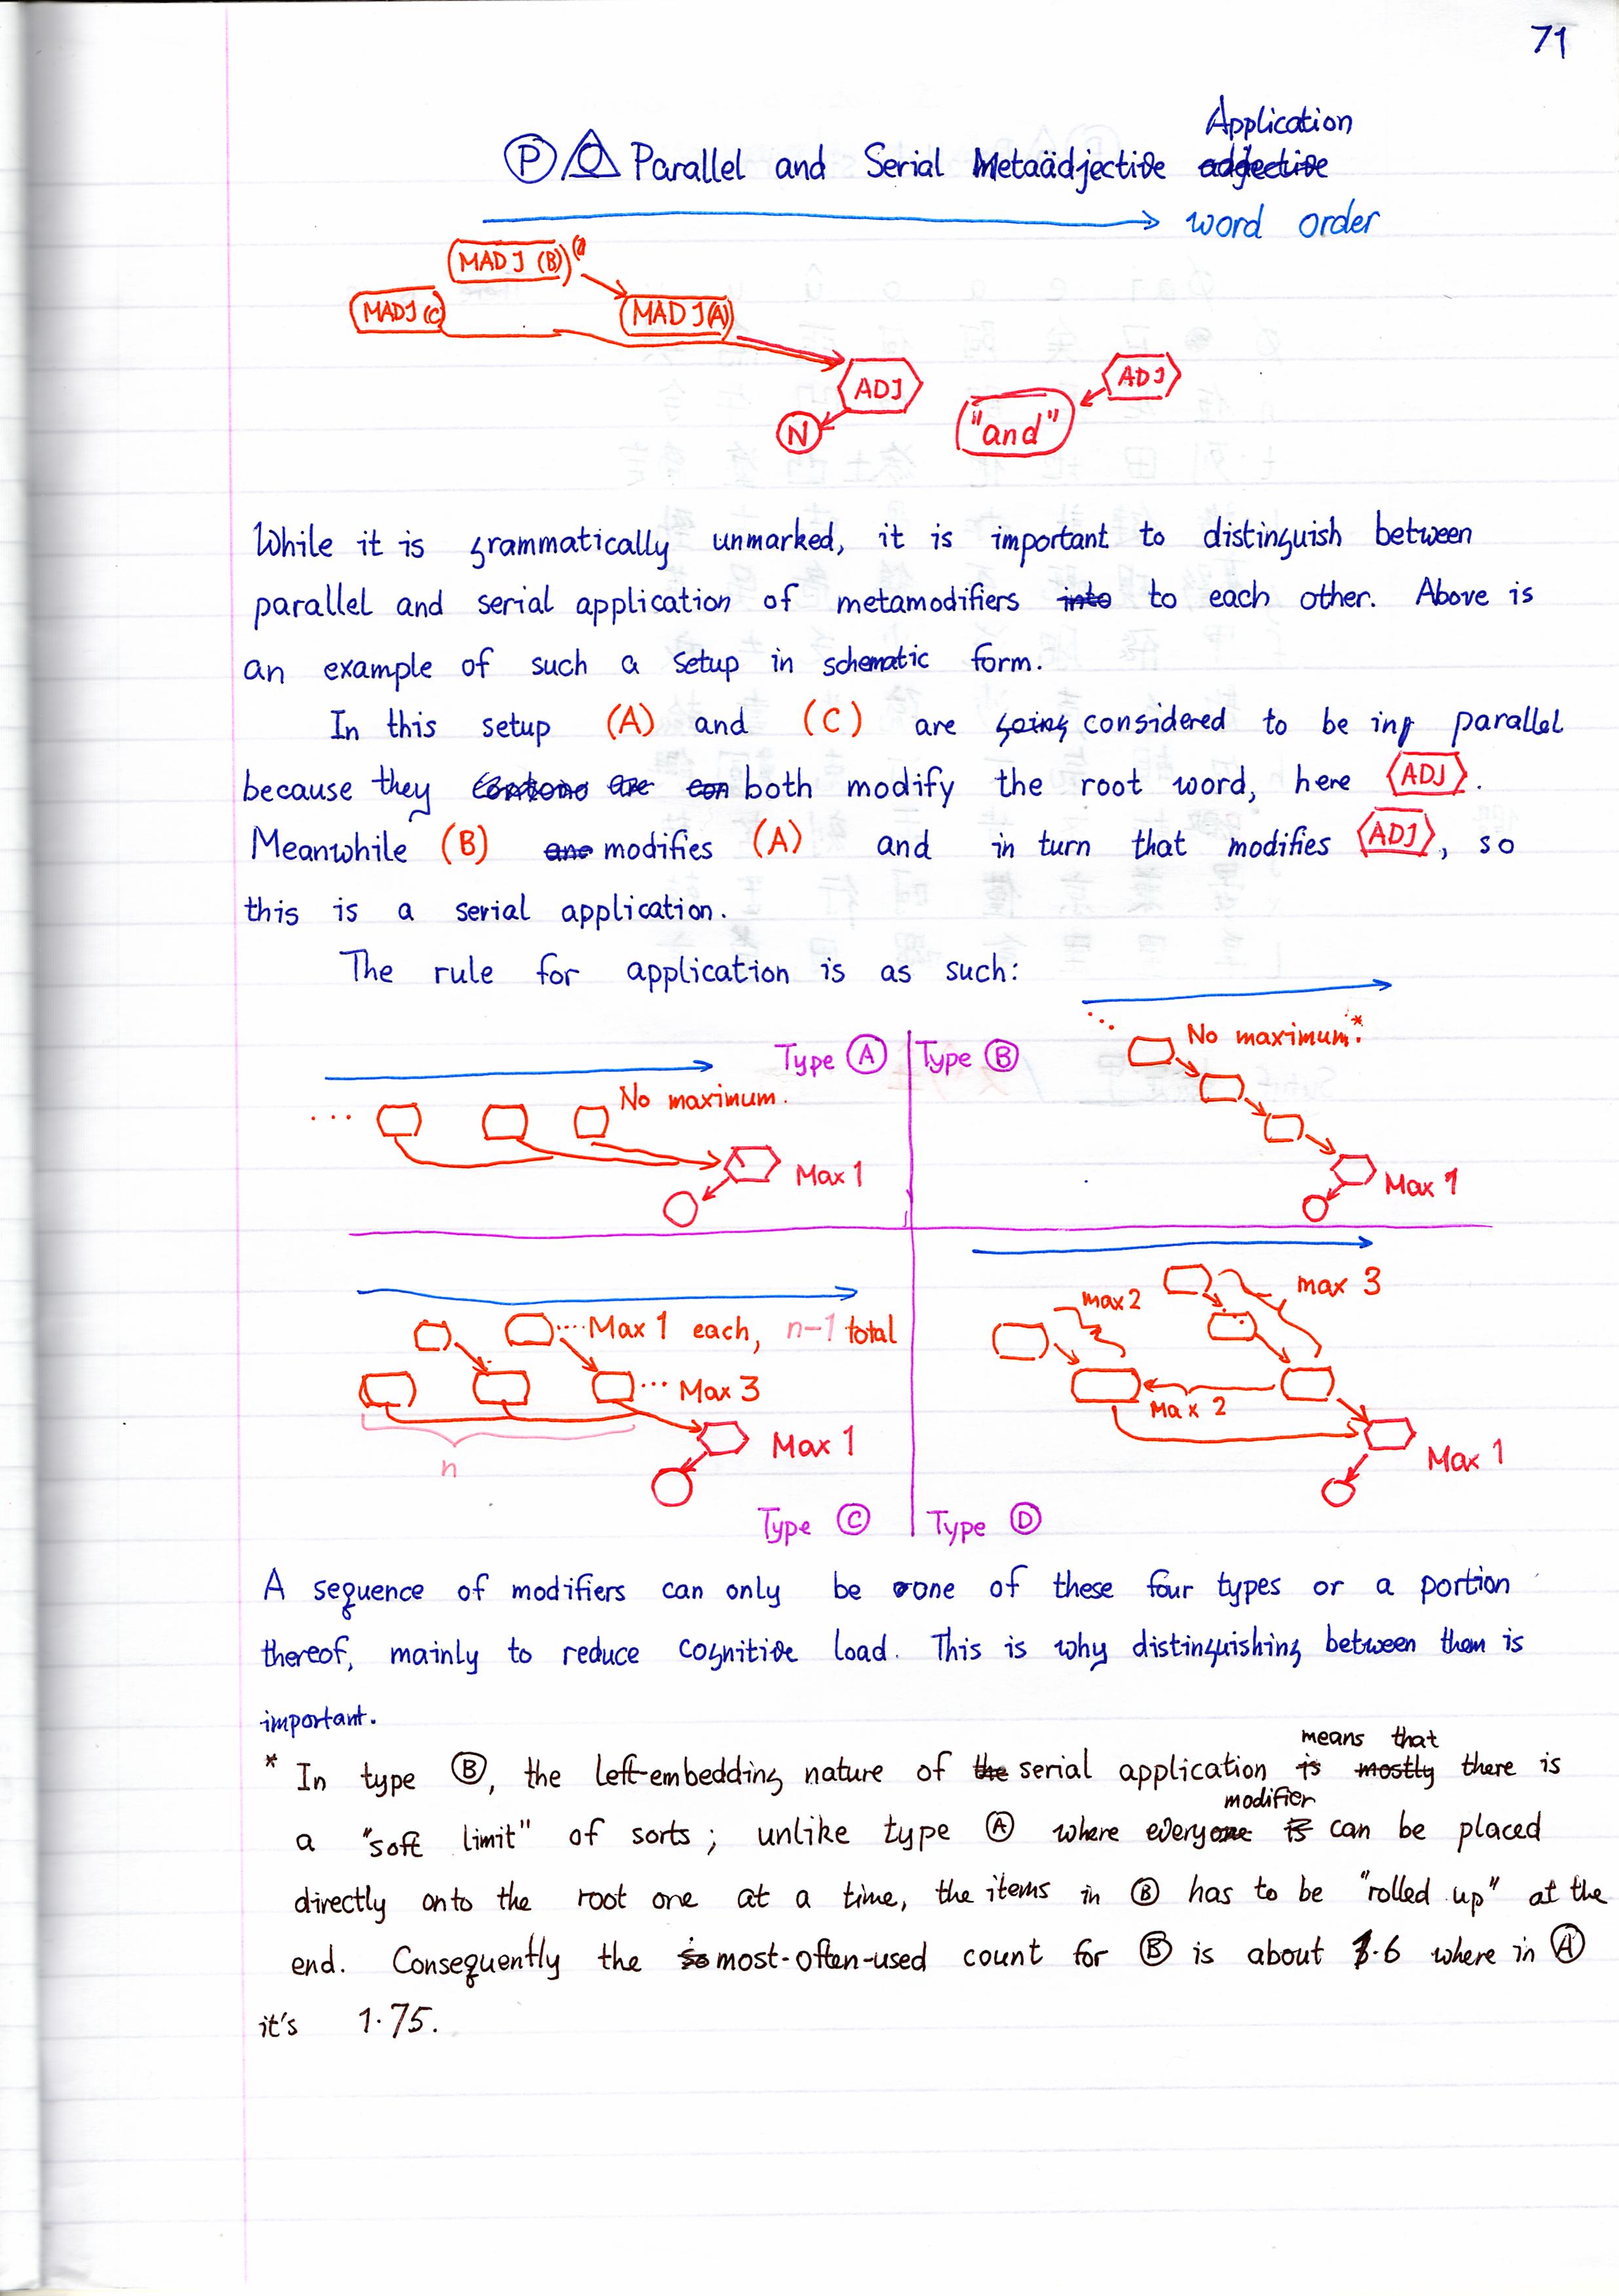 71
Application
Ⓟ Parallel and Serial Metaädjective adjective
word order
MADJ (B)
MADJ (C)
MADJ (A)
ADJ
ADJ
N
"and"
While it is grammatically unmarked, it is important to distinguish between
parallel and serial application of metamodifiers into to each other. Above is
an example of such a setup in schematic form.
In this setup (A) and (C) are going considered to be in parallel
because they are con both modify the root word, here ADJ.
Meanwhile (B) and modifies (A) and in turn that modifies ADJ, so
this is a serial application.
The rule for application is as such:
Type Ⓐ
No maximum.
Max 1
Type Ⓑ
No maximum.*
Max 1
Max 1 each, n-1 total
Max 3
n
Max 1
Type Ⓒ
max 2
max 3
Max 2
Max 1
Type Ⓓ
A sequence of modifiers can only be one of these four types or a portion
thereof, mainly to reduce cognitive load. This is why distinguishing between them is
important.
means that
* In type Ⓑ, the left-embedding nature of the serial application is mostly there is
modifier
a "soft limit" of sorts; unlike type Ⓐ where everyone is can be placed
directly onto the root one at a time, the items in Ⓑ has to be "rolled up" at the
end. Consequently the so most-often-used count for Ⓑ is about 1.6 where in Ⓐ
it's 1.75.